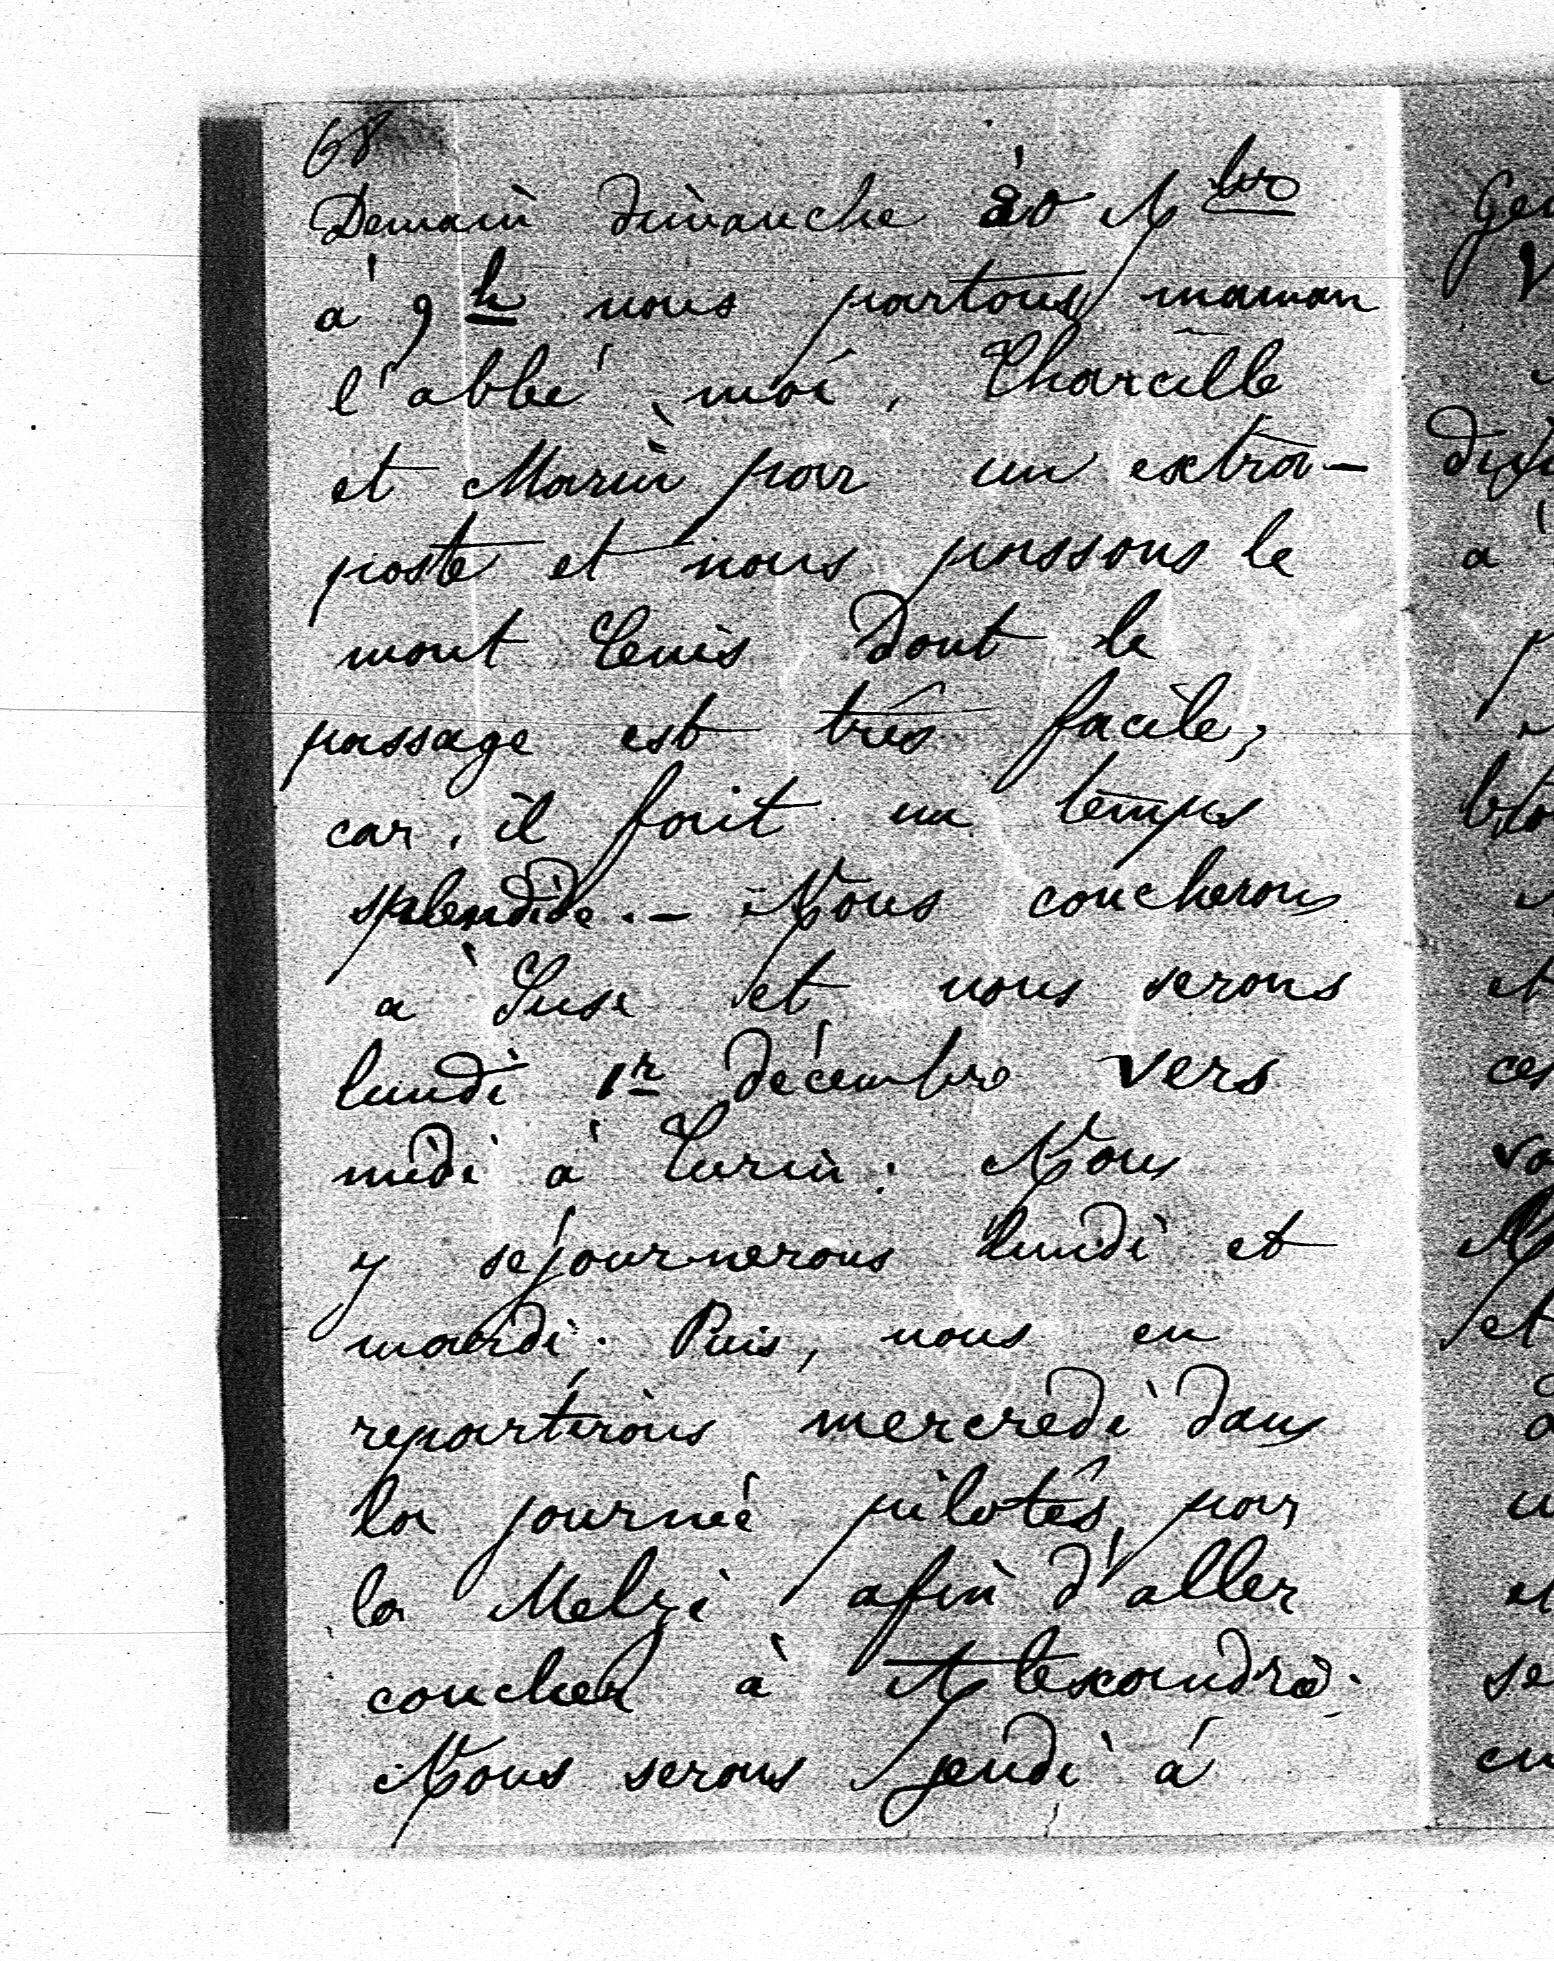 68
Demain dimanche 30 Nbre
à 9h nous partons, maman
l'abbé, moi, Tharcille
et Marin par un extra-
poste et nous passons le
mont Cenis dont le
passage est très facile,
car, il fait un temps
splendide. - Nous coucherons
à Suse et nous serons
lundi 1r décembre vers
midi à Turin. Nous
y séjournerons lundi et
mardi. Puis, nous en
repartirons mercredi dans
la journée pilotés, par
la Melzi afin d'aller
coucher à Alexandrie.
Nous serons jeudi à